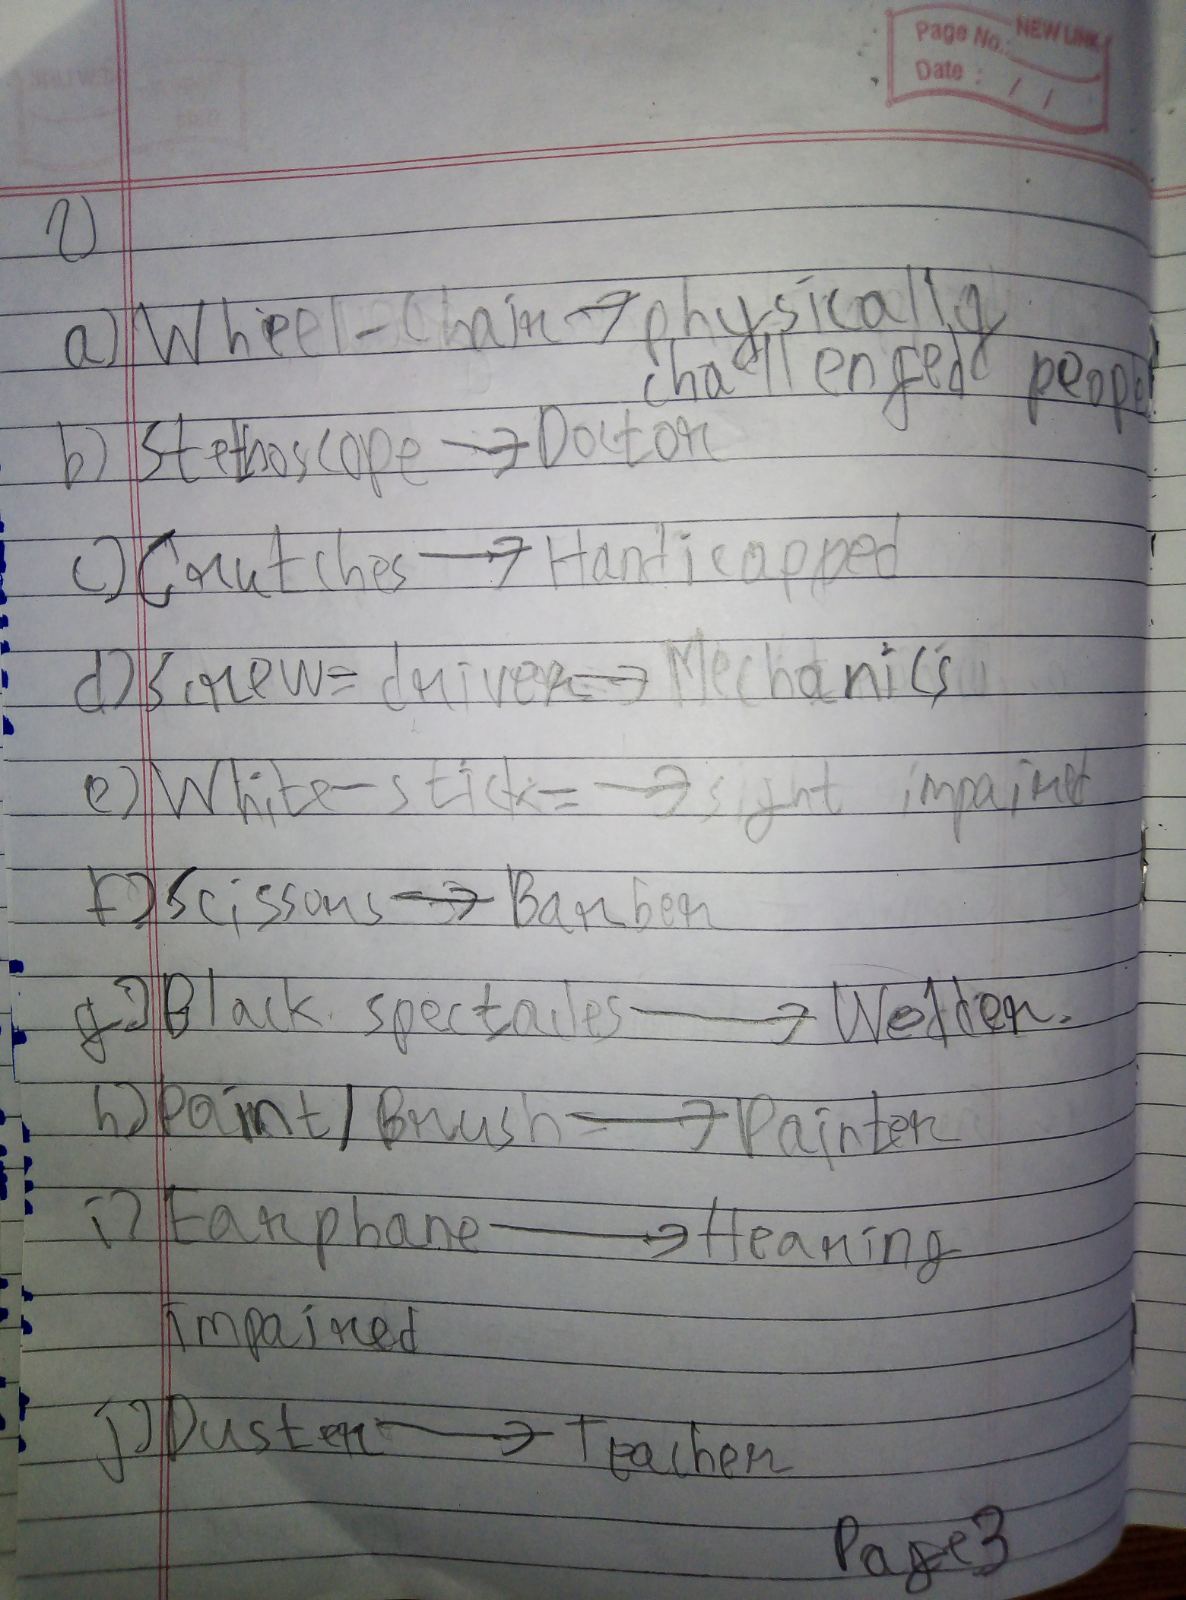 Page No.: NEW LINK
Date : / /
1)
a) Wheel-Chair → physically
challenged people
b) Stethoscope → Doctor
c) Crutches → Handicapped
d) Screw= driver → Mechanics
e) White-stick= → sight impaired
f) Scissors → Barber
g) Black spectacles → Welder.
h) Paint/Brush → Painter
i) Earphane → Hearing
impaired
j) Duster → Teacher
Page3